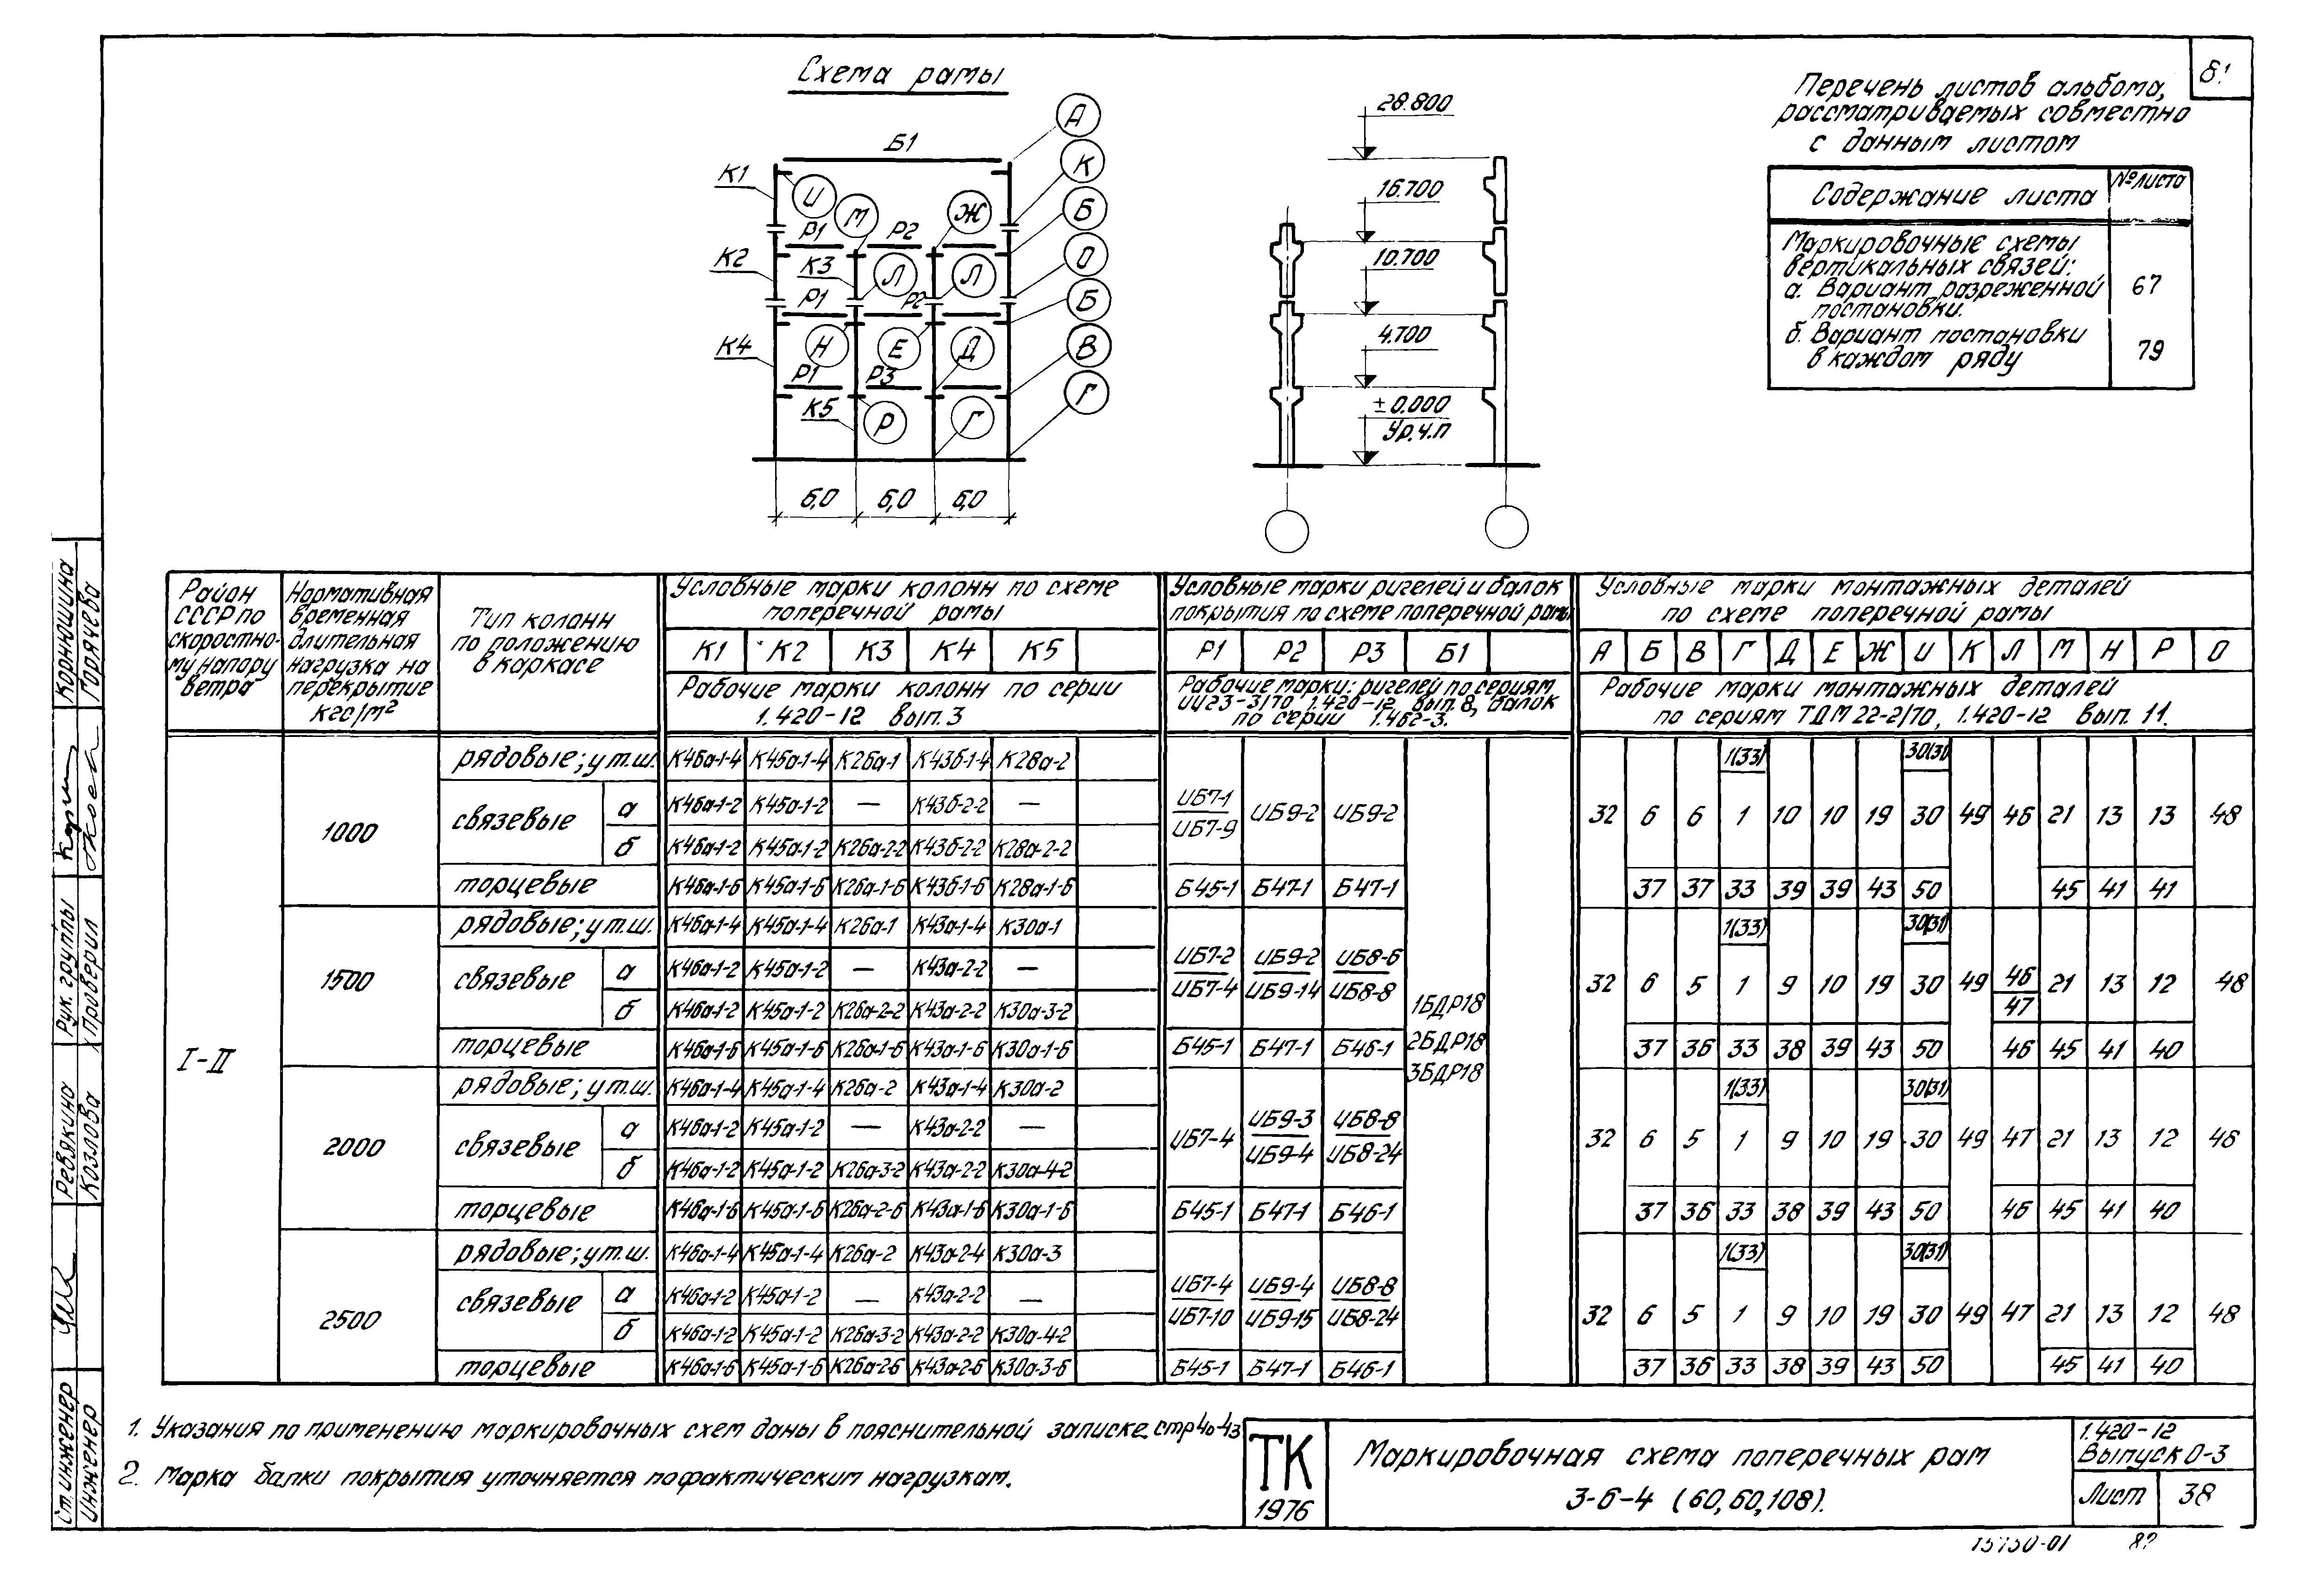 81
Схема рамы
Б1
К1
К2
К3
К4
К5
Р1
Р2
Р1
Р2
Р1
Р3
И
М
Ж
Л
Л
Н
Е
Д
Р
Г
А
К
Б
О
Б
В
Г
6,0 6,0 6,0
28.800
16.700
10.700
4.700
±0.000
Ур.ч.п
Перечень листов альбома,
рассматриваемых совместно
с данным листом
Содержание листа № листа
Маркировочные схемы
вертикальных связей:
а. Вариант разреженной
постановки. 67
б. Вариант постановки
в каждом ряду 79
Район СССР по скоростному напору ветра
Нормативная временная длительная нагрузка на перекрытие кгс/м²
Тип колонн по положению в каркасе
Условные марки колонн по схеме поперечной рамы
К1 К2 К3 К4 К5
Рабочие марки колонн по серии 1.420-12 вып. 3
Условные марки ригелей и балок покрытия по схеме поперечной рамы
Р1 Р2 Р3 Б1
Рабочие марки: ригелей по сериям ИИ23-3/70, 1.420-12 вып. 8, балок по серии 1.462-3.
Условные марки монтажных деталей по схеме поперечной рамы
А Б В Г Д Е Ж И К Л М Н Р О
Рабочие марки монтажных деталей по сериям ТДМ 22-2/70, 1.420-12 вып. 11.
I-II
1БДР18
2БДР18
3БДР18
1000
рядовые; у т.ш. К46а-1-4 К45а-1-4 К26а-1 К43б-1-4 К28а-2 1(33) 30(31)
связевые а К46а-1-2 К45а-1-2 — К43б-2-2 —
ИБ7-1 ИБ7-9 ИБ9-2 ИБ9-2
32 6 6 1 10 10 19 30 49 46 21 13 13 48
б К46а-1-2 К45а-1-2 К26а-2-2 К43б-2-2 К28а-2-2
торцевые К46а-1-6 К45а-1-6 К26а-1-6 К43б-1-6 К28а-1-6 Б45-1 Б47-1 Б47-1 37 37 33 39 39 43 50 45 41 41
1500
рядовые; у т.ш. К46а-1-4 К45а-1-4 К26а-1 К43а-1-4 К30а-1 1(33) 30(31)
связевые а К46а-1-2 К45а-1-2 — К43а-2-2 —
ИБ7-2 ИБ7-4 ИБ9-2 ИБ9-14 ИБ8-6 ИБ8-8
32 6 5 1 9 10 19 30 49 46 47 21 13 12 48
б К46а-1-2 К45а-1-2 К26а-2-2 К43а-2-2 К30а-3-2
торцевые К46а-1-6 К45а-1-6 К26а-1-6 К43а-1-6 К30а-1-6 Б45-1 Б47-1 Б46-1 37 36 33 38 39 43 50 46 45 41 40
2000
рядовые; у т.ш. К46а-1-4 К45а-1-4 К26а-2 К43а-1-4 К30а-2 1(33) 30(31)
связевые а К46а-1-2 К45а-1-2 — К43а-2-2 —
ИБ7-4 ИБ9-3 ИБ9-4 ИБ8-8 ИБ8-24
32 6 5 1 9 10 19 30 49 47 21 13 12 48
б К46а-1-2 К45а-1-2 К26а-3-2 К43а-2-2 К30а-4-2
торцевые К46а-1-6 К45а-1-6 К26а-2-6 К43а-1-6 К30а-1-6 Б45-1 Б47-1 Б46-1 37 36 33 38 39 43 50 46 45 41 40
2500
рядовые; у т.ш. К46а-1-4 К45а-1-4 К26а-2 К43а-2-4 К30а-3 1(33) 30(31)
связевые а К46а-1-2 К45а-1-2 — К43а-2-2 —
ИБ7-4 ИБ7-10 ИБ9-4 ИБ9-15 ИБ8-8 ИБ8-24
32 6 5 1 9 10 19 30 49 47 21 13 12 48
б К46а-1-2 К45а-1-2 К26а-3-2 К43а-2-2 К30а-4-2
торцевые К46а-1-6 К45а-1-6 К26а-2-6 К43а-2-6 К30а-3-6 Б45-1 Б47-1 Б46-1 37 36 33 38 39 43 50 45 41 40
1. Указания по применению маркировочных схем даны в пояснительной записке стр 40-43
2. Марка балки покрытия уточняется по фактическим нагрузкам.
ТК
1976
Маркировочная схема поперечных рам
3-6-4 (60, 60, 108).
1.420-12
Выпуск 0-3
Лист 38
82
Ст. инженер Ревякина
Инженер Козлова
Рук. группы Корнюшина
Проверил Горячева